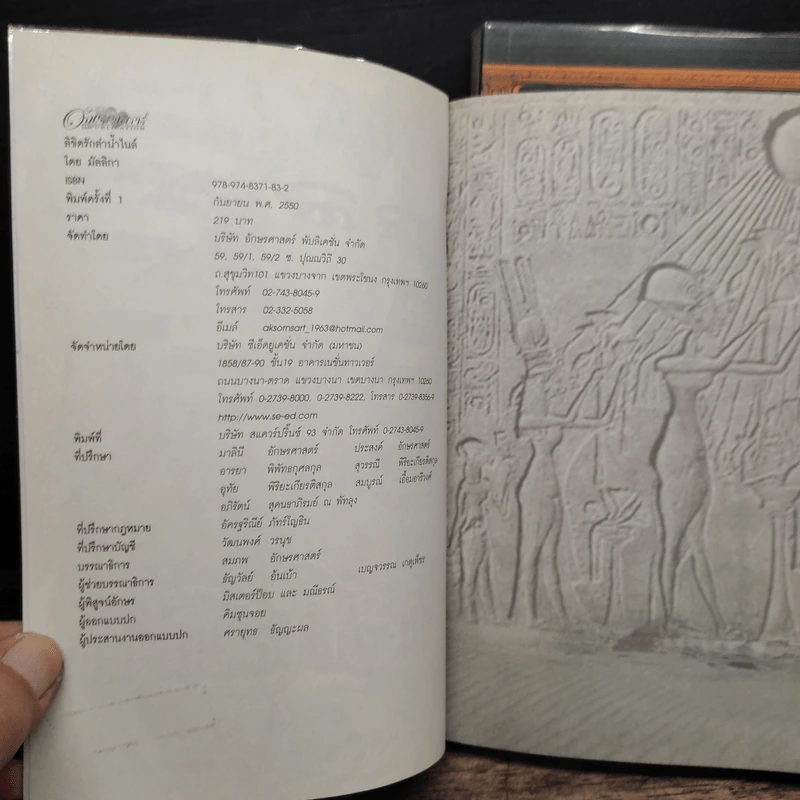 ลิขิตรักลำน้ำไนล์
โดย มัลลิกา
ISBN 978-974-8371-83-2
พิมพ์ครั้งที่ 1 กันยายน พ.ศ. 2550
ราคา 219 บาท
จัดทำโดย บริษัท อักษรศาสตร์ พับลิเคชั่น จำกัด
59, 59/1, 59/2 ซ. ปุณณวิถี 30
ถ.สุขุมวิท101 แขวงบางจาก เขตพระโขนง กรุงเทพฯ 10260
โทรศัพท์ 02-743-8045-9
โทรสาร 02-332-5058
อีเมล์ aksornsart_1963@hotmail.com
จัดจำหน่ายโดย บริษัท ซีเอ็ดยูเคชั่น จำกัด (มหาชน)
1858/87-90 ชั้น19 อาคารเนชั่นทาวเวอร์
ถนนบางนา-ตราด แขวงบางนา เขตบางนา กรุงเทพฯ 10260
โทรศัพท์ 0-2739-8000, 0-2739-8222, โทรสาร 0-2739-8356-9
http://www.se-ed.com
พิมพ์ที่ บริษัท สแควร์ปริ๊นซ์ 93 จำกัด โทรศัพท์ 0-2743-8045-9
ที่ปรึกษา มาลินี อักษรศาสตร์ ประสงค์ อักษรศาสตร์
อารยา พิพัทธกุศลกุล สุวรรณี พิริยะเกียรติสกุล
อุทัย พิริยะเกียรติสกุล สมบูรณ์ เอื้อมอารีวงศ์
อภิรัตน์ สุคนธาภิรมย์ ณ พัทลุง
ที่ปรึกษากฎหมาย อัครฐริณีย์ ภัทร์โญธิน
ที่ปรึกษาบัญชี วัฒนพงศ์ วรนุช
บรรณาธิการ สมภพ อักษรศาสตร์
ผู้ช่วยบรรณาธิการ ธัญวัลย์ อ้นเบ้า เบญจวรรณ เกตุเพ็ชร
ผู้พิสูจน์อักษร มิสเตอร์ป๊อบ และ มณีธรณ์
ผู้ออกแบบปก คิมชุนจอย
ผู้ประสานงานออกแบบปก ศรายุทธ ธัญญะผล